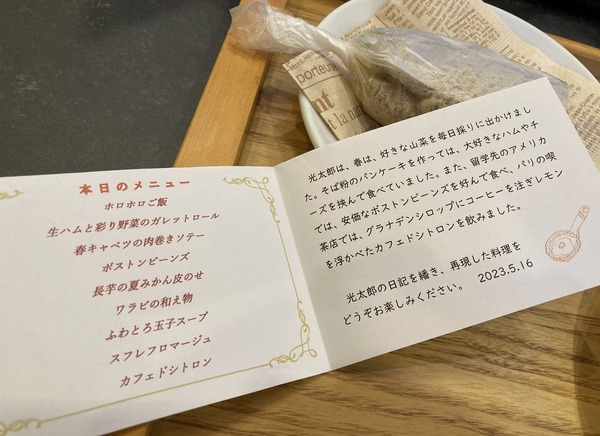 本日のメニュー
ホロホロご飯
生ハムと彩り野菜のガレットロール
春キャベツの肉巻きソテー
ボストンビーンズ
長芋の夏みかん皮のせ
ワラビの和え物
ふわとろ玉子スープ
スフレフロマージュ
カフェドシトロン
光太郎は、春は、好きな山菜を毎日採りに出かけまし
た。そば粉のパンケーキを作っては、大好きなハムやチ
ーズを挟んで食べていました。また、留学先のアメリカ
では、安価なボストンビーンズを好んで食べ、パリの喫
茶店では、グラナデンシロップにコーヒーを注ぎレモン
を浮かべたカフェドシトロンを飲みました。
光太郎の日記を繙き、再現した料理を
どうぞお楽しみください。 2023.5.16
porteus
nt